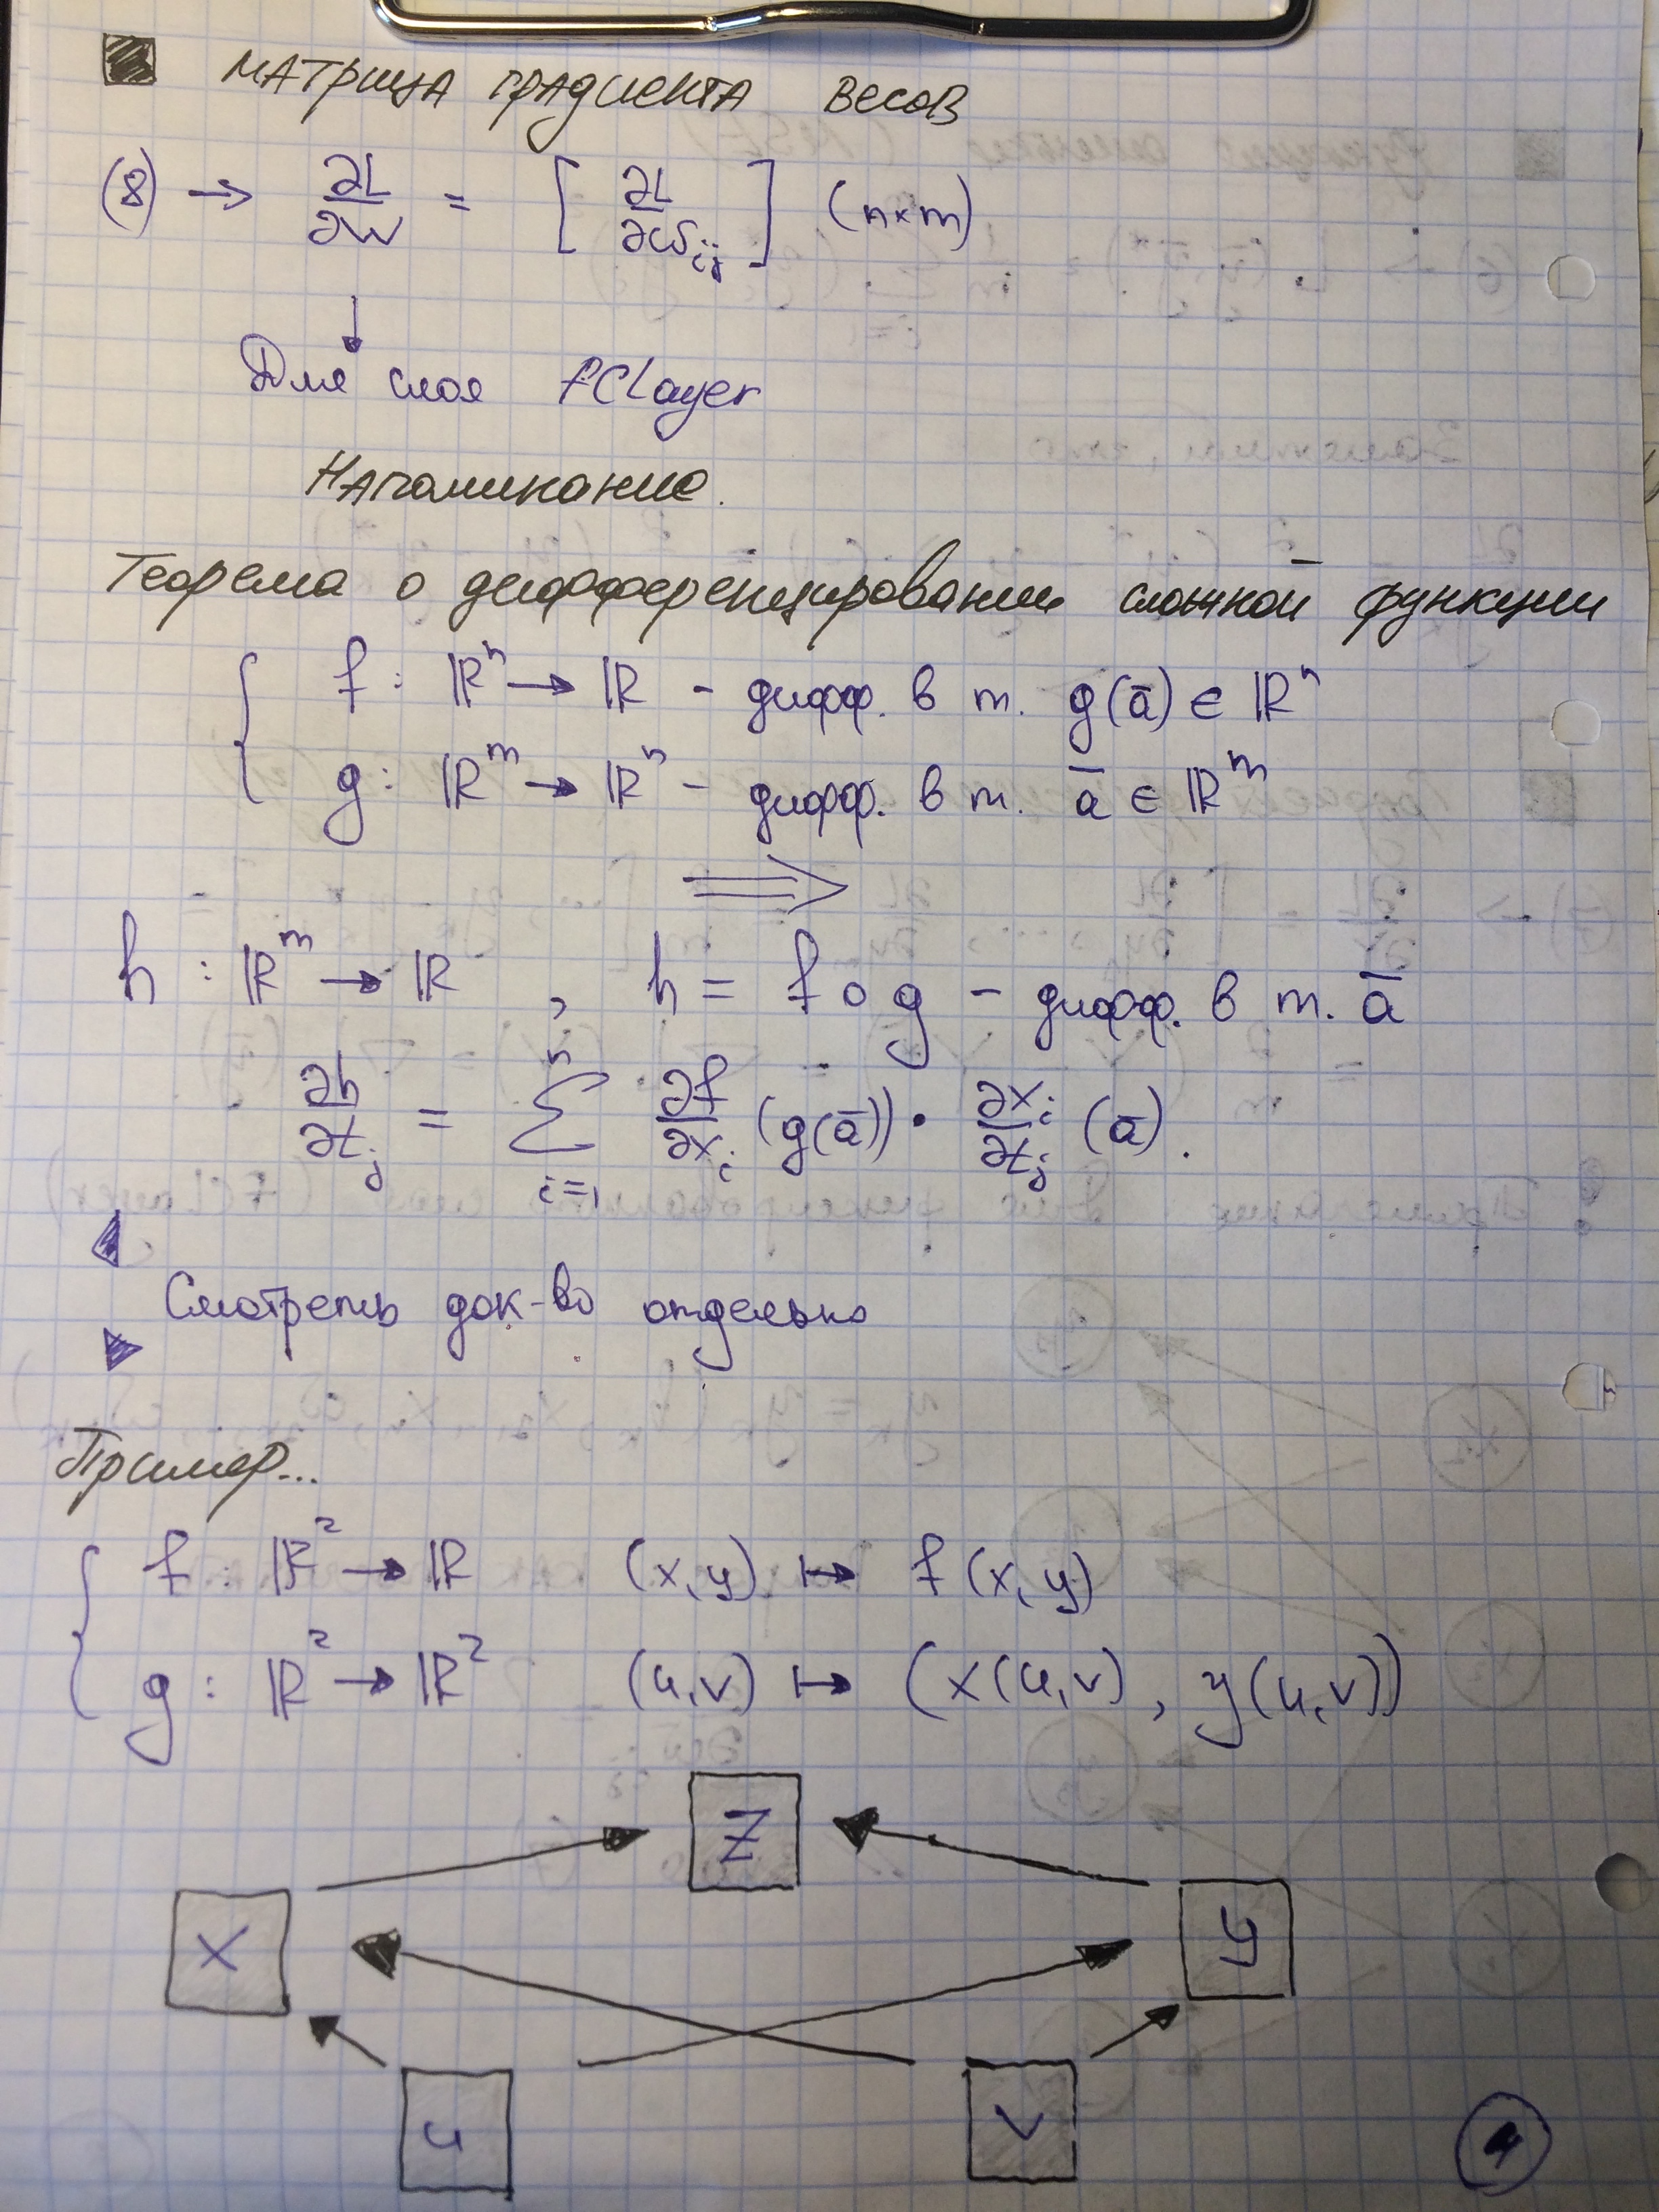 Матрица градиента весов
(8) → ∂L/∂W = [ ∂L/∂ω_ij ] (n×m)
Для слоя FCLayer
Напоминание.
Теорема о дифференцировании сложной функции
f : ℝ^n → ℝ - дифф. в т. g(ā) ∈ ℝ^n
g : ℝ^m → ℝ^n - дифф. в т. ā ∈ ℝ^m
⟹
h : ℝ^m → ℝ , h = f ∘ g - дифф. в т. ā
∂h/∂t_j = ∑_{i=1}^{n} ∂f/∂x_i (g(ā)) · ∂x_i/∂t_j (ā).
Смотреть док-во отдельно
Пример...
f : ℝ^2 → ℝ (x,y) ↦ f(x,y)
g : ℝ^2 → ℝ^2 (u,v) ↦ (x(u,v), y(u,v))
Z
X y
u v